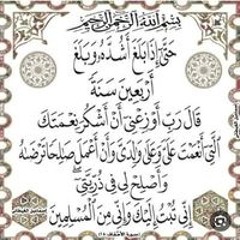 بسم الله الرحمن الرحيم
حَتَّىٰ إِذَا بَلَغَ أَشُدَّهُ وَبَلَغَ
أَرْبَعِينَ سَنَةً
قَالَ رَبِّ أَوْزِعْنِي أَنْ أَشْكُرَ نِعْمَتَكَ
الَّتِي أَنْعَمْتَ عَلَيَّ وَعَلَىٰ وَالِدَيَّ وَأَنْ أَعْمَلَ صَالِحًا تَرْضَاهُ
وَأَصْلِحْ لِي فِي ذُرِّيَّتِي
إِنِّي تُبْتُ إِلَيْكَ وَإِنِّي مِنَ الْمُسْلِمِينَ
سورة الأحقاف ١٥